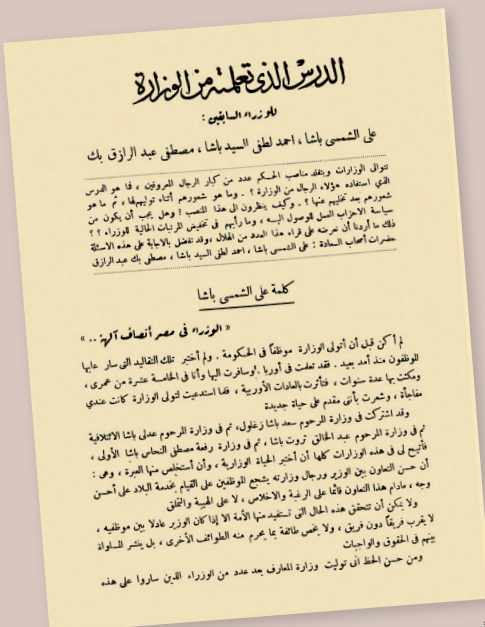 الدرس الذى تعلمته من الوزارة
للوزراء السابقين :
على الشمسى باشا ، احمد لطفى السيد باشا ، مصطفى عبد الرازق بك
تتوالى الوزارات ويتقلد مناصب الحكم عدد من كبار الرجال المعروفين ، فما هو الدرس
الذى استفاده هؤلاء الرجال من الوزارة ؟ . وما هو شعورهم أثناء توليهم لها ، ثم ما هو
شعورهم بعد تخليهم عنها ؟ . وكيف ينظرون الى هذا المنصب ! وهل يجب أن يكون من
سياسة الاحزاب العمل للوصول اليه ، وما رأيهم فى تخفيض المرتبات الحالية للوزراء ؟ ؟
ذلك ما أردنا أن نعرضه على قراء هذا العدد من الهلال ، وقد تفضل بالاجابة على هذه الاسئلة
حضرات أصحاب السعادة : على الشمسى باشا ، احمد لطفى السيد باشا ، مصطفى بك عبد الرازق
كلمة على الشمسى باشا
« الوزراء فى مصر أنصاف آلهة .. »
لم أكن قبل أن أتولى الوزارة موظفاً فى الحكومة . ولم أختبر تلك التقاليد التى سار عليها
الموظفون منذ أمد بعيد . فقد تعلمت فى أوربا . وسافرت اليها وأنا فى الخامسة عشرة من عمرى ،
ومكثت بها عدة سنوات ، فتأثرت بالعادات الأوربية ، فلما استدعيت لتولى الوزارة كانت عندى
مفاجأة ، وشعرت بأننى مقدم على حياة جديدة
وقد اشتركت فى وزارة المرحوم سعد باشا زغلول ، ثم فى وزارة المرحوم عدلى باشا الائتلافية
ثم فى وزارة المرحوم عبد الخالق ثروت باشا ، ثم فى وزارة رفعة مصطفى النحاس باشا الأولى ،
فأتيح لى فى هذه الوزارات كلها أن أختبر الحياة الوزارية ، وأن أستخلص منها العبرة ، وهى :
أن حسن التعاون بين الوزير ورجال وزارته يشجع الموظفين على القيام بخدمة البلاد على أحسن
وجه ، مادام هذا التعاون قائما على الرغبة والاخلاص ، لا على الهيبة والتملق
ولا يمكن أن تتحقق هذه الحال التى تستفيد منها الأمة الا إذا كان الوزير عادلا بين موظفيه ،
لا يقرب فريقاً دون فريق ، ولا يخص طائفة بما يحرم منه الطوائف الأخرى ، بل ينشر المساواة
بينهم فى الحقوق والواجبات
ومن حسن الحظ انى توليت وزارة المعارف بعد عدد من الوزراء الذين ساروا على هذه